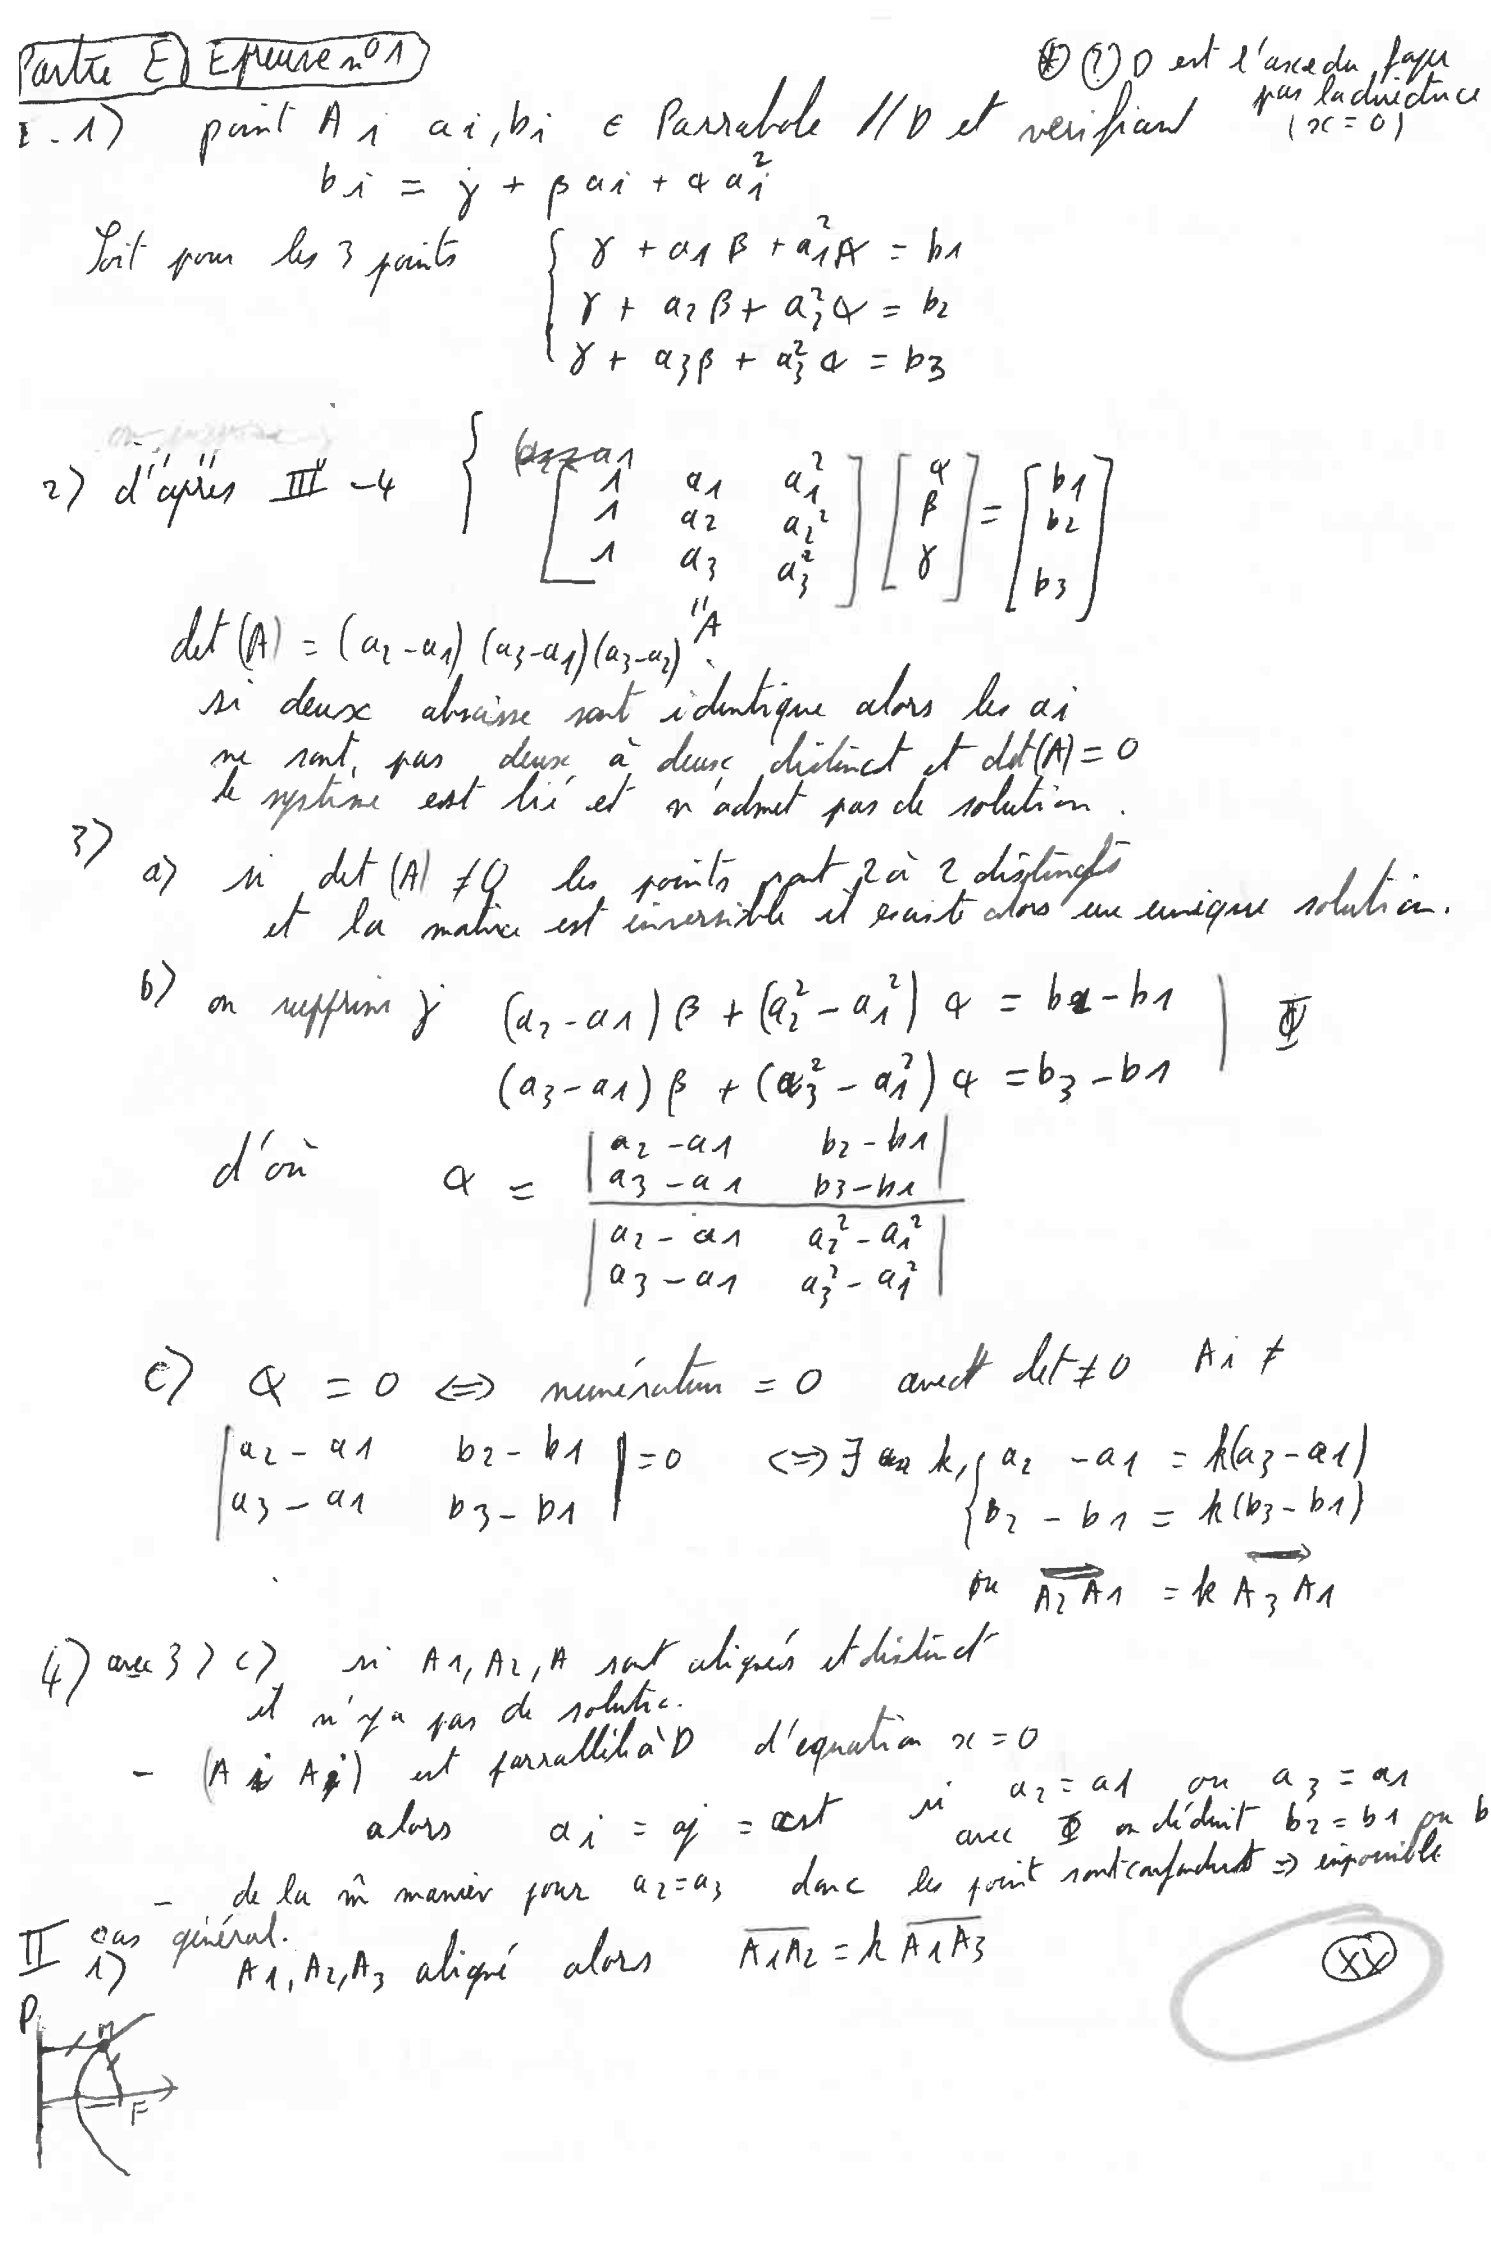 Partie E) Epreuve n°1
⊛ (?) D est l'axe du foyer
par la directrice
(x = 0)
I - 1) point Ai ai, bi ∈ Parrabole // D et vérifiant
bi = γ + β ai + α ai²
Soit pour les 3 points { γ + a1 β + a1² α = b1
γ + a2 β + a2² α = b2
γ + a3 β + a3² α = b3
2) d'après III - 4 { [ 1 a1 a1² ] [ α ] = [ b1 ]
1 a2 a2² β b2
1 a3 a3² γ b3
"A
det (A) = (a2 - a1) (a3 - a1) (a3 - a2).
si deux abscisse sont identique alors les ai
ne sont, pas deux à deux distinct et det (A) = 0
le système est lié et n'admet pas de solution.
3)
a) si det (A) ≠ 0 les points sont 2 à 2 distincts
et la matrice est inversible il existe alors une unique solution.
b) on supprime γ (a2 - a1) β + (a2² - a1²) α = b2 - b1 | Φ
(a3 - a1) β + (a3² - a1²) α = b3 - b1
d'où α = | a2 - a1 b2 - b1 |
| a3 - a1 b3 - b1 |
| a2 - a1 a2² - a1² |
| a3 - a1 a3² - a1² |
c) α = 0 ⟺ numérateur = 0 avec det ≠ 0 Ai ≠
| a2 - a1 b2 - b1 | = 0 ⟺ ∃ k, { a2 - a1 = k(a3 - a1)
| a3 - a1 b3 - b1 | b2 - b1 = k(b3 - b1)
ou A2A1 = k A3A1
4) avec 3) c) si A1, A2, A sont alignés et distinct
il n'y a pas de solution.
- (Ai Aj) est parrallèle à D d'equation x = 0
alors ai = aj = cst si a2 = a1 ou a3 = a1
avec Φ on déduit b2 = b1 ou b
- de la m̂ manier pour a2 = a3 donc les point sont confondus ⇒ impossible
II cas général.
1) A1, A2, A3 aligné alors A1A2 = k A1A3
XX
P
M
F